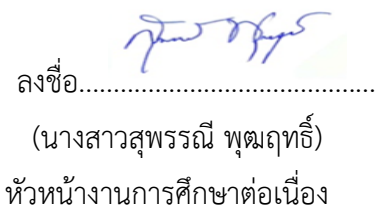 ลงชื่อ...........................................
(นางสาวสุพรรณี พุฒฤทธิ์)
หัวหน้างานการศึกษาต่อเนื่อง